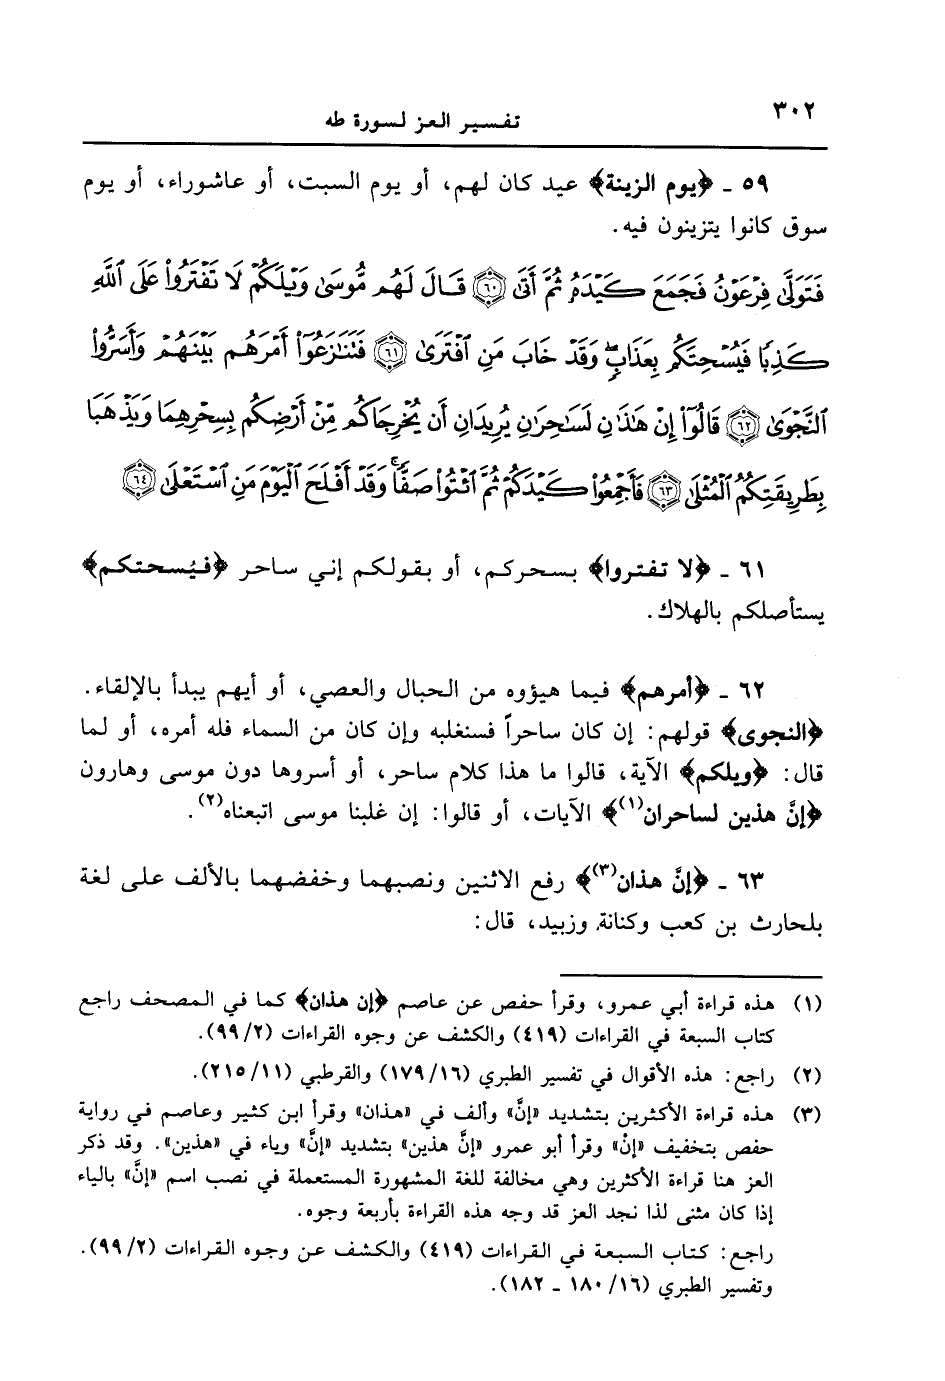 ٣٠٢
تفسير العز لسورة طه
٥٩ ـ ﴿يوم الزينة﴾ عيد كان لهم، أو يوم السبت، أو عاشوراء، أو يوم
سوق كانوا يتزينون فيه.
فَتَوَلَّىٰ فِرْعَوْنُ فَجَمَعَ كَيْدَهُۥ ثُمَّ أَتَىٰ ٦٠ قَالَ لَهُم مُّوسَىٰ وَيْلَكُمْ لَا تَفْتَرُوا۟ عَلَى ٱللَّهِ
كَذِبًا فَيُسْحِتَكُم بِعَذَابٍ ۖ وَقَدْ خَابَ مَنِ ٱفْتَرَىٰ ٦١ فَتَنَٰزَعُوٓا۟ أَمْرَهُم بَيْنَهُمْ وَأَسَرُّوا۟
ٱلنَّجْوَىٰ ٦٢ قَالُوٓا۟ إِنْ هَٰذَٰنِ لَسَٰحِرَٰنِ يُرِيدَانِ أَن يُخْرِجَاكُم مِّنْ أَرْضِكُم بِسِحْرِهِمَا وَيَذْهَبَا
بِطَرِيقَتِكُمُ ٱلْمُثْلَىٰ ٦٣ فَأَجْمِعُوا۟ كَيْدَكُمْ ثُمَّ ٱئْتُوا۟ صَفًّا ۚ وَقَدْ أَفْلَحَ ٱلْيَوْمَ مَنِ ٱسْتَعْلَىٰ ٦٤
٦١ ـ ﴿لا تفتروا﴾ بسحركم، أو بقولكم إني ساحر ﴿فيُسحتكم﴾
يستأصلكم بالهلاك.
٦٢ ـ ﴿أمرهم﴾ فيما هيؤوه من الحبال والعصي، أو أيهم يبدأ بالإلقاء.
﴿النجوى﴾ قولهم: إن كان ساحراً فسنغلبه وإن كان من السماء فله أمره، أو لما
قال: ﴿ويلكم﴾ الآية، قالوا ما هذا كلام ساحر، أو أسروها دون موسى وهارون
﴿إنَّ هذين لساحران(١)﴾ الآيات، أو قالوا: إن غلبنا موسى اتبعناه(٢).
٦٣ ـ ﴿إنَّ هذان(٣)﴾ رفع الاثنين ونصبهما وخفضهما بالألف على لغة
بلحارث بن كعب وكنانة وزبيد، قال:
(١) هذه قراءة أبي عمرو، وقرأ حفص عن عاصم ﴿إن هذان﴾ كما في المصحف راجع
كتاب السبعة في القراءات (٤١٩) والكشف عن وجوه القراءات (٩٩/٢).
(٢) راجع: هذه الأقوال في تفسير الطبري (١٧٩/١٦) والقرطبي (٢١٥/١١).
(٣) هذه قراءة الأكثرين بتشديد «إنَّ» وألف في «هذان» وقرأ ابن كثير وعاصم في رواية
حفص بتخفيف «إنْ» وقرأ أبو عمرو «إنَّ هذين» بتشديد «إنَّ» وياء في «هذين». وقد ذكر
العز هنا قراءة الأكثرين وهي مخالفة للغة المشهورة المستعملة في نصب اسم «إنَّ» بالياء
إذا كان مثنى لذا نجد العز قد وجه هذه القراءة بأربعة وجوه.
راجع: كتاب السبعة في القراءات (٤١٩) والكشف عن وجوه القراءات (٩٩/٢).
وتفسير الطبري (١٨٠/١٦ ـ ١٨٢).